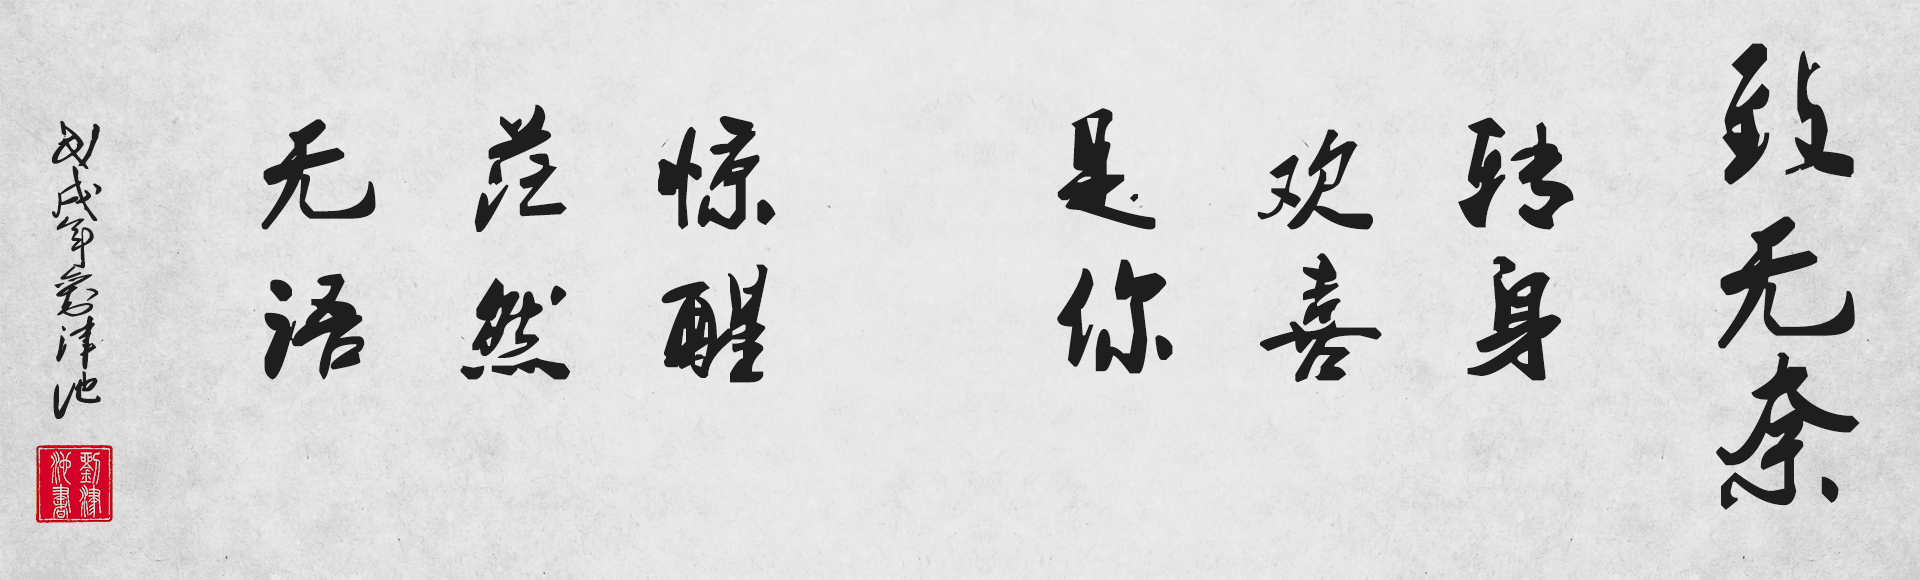 致无奈
转身
欢喜
是你
惊醒
茫然
无语
戊戌年刘津池
刘津池书